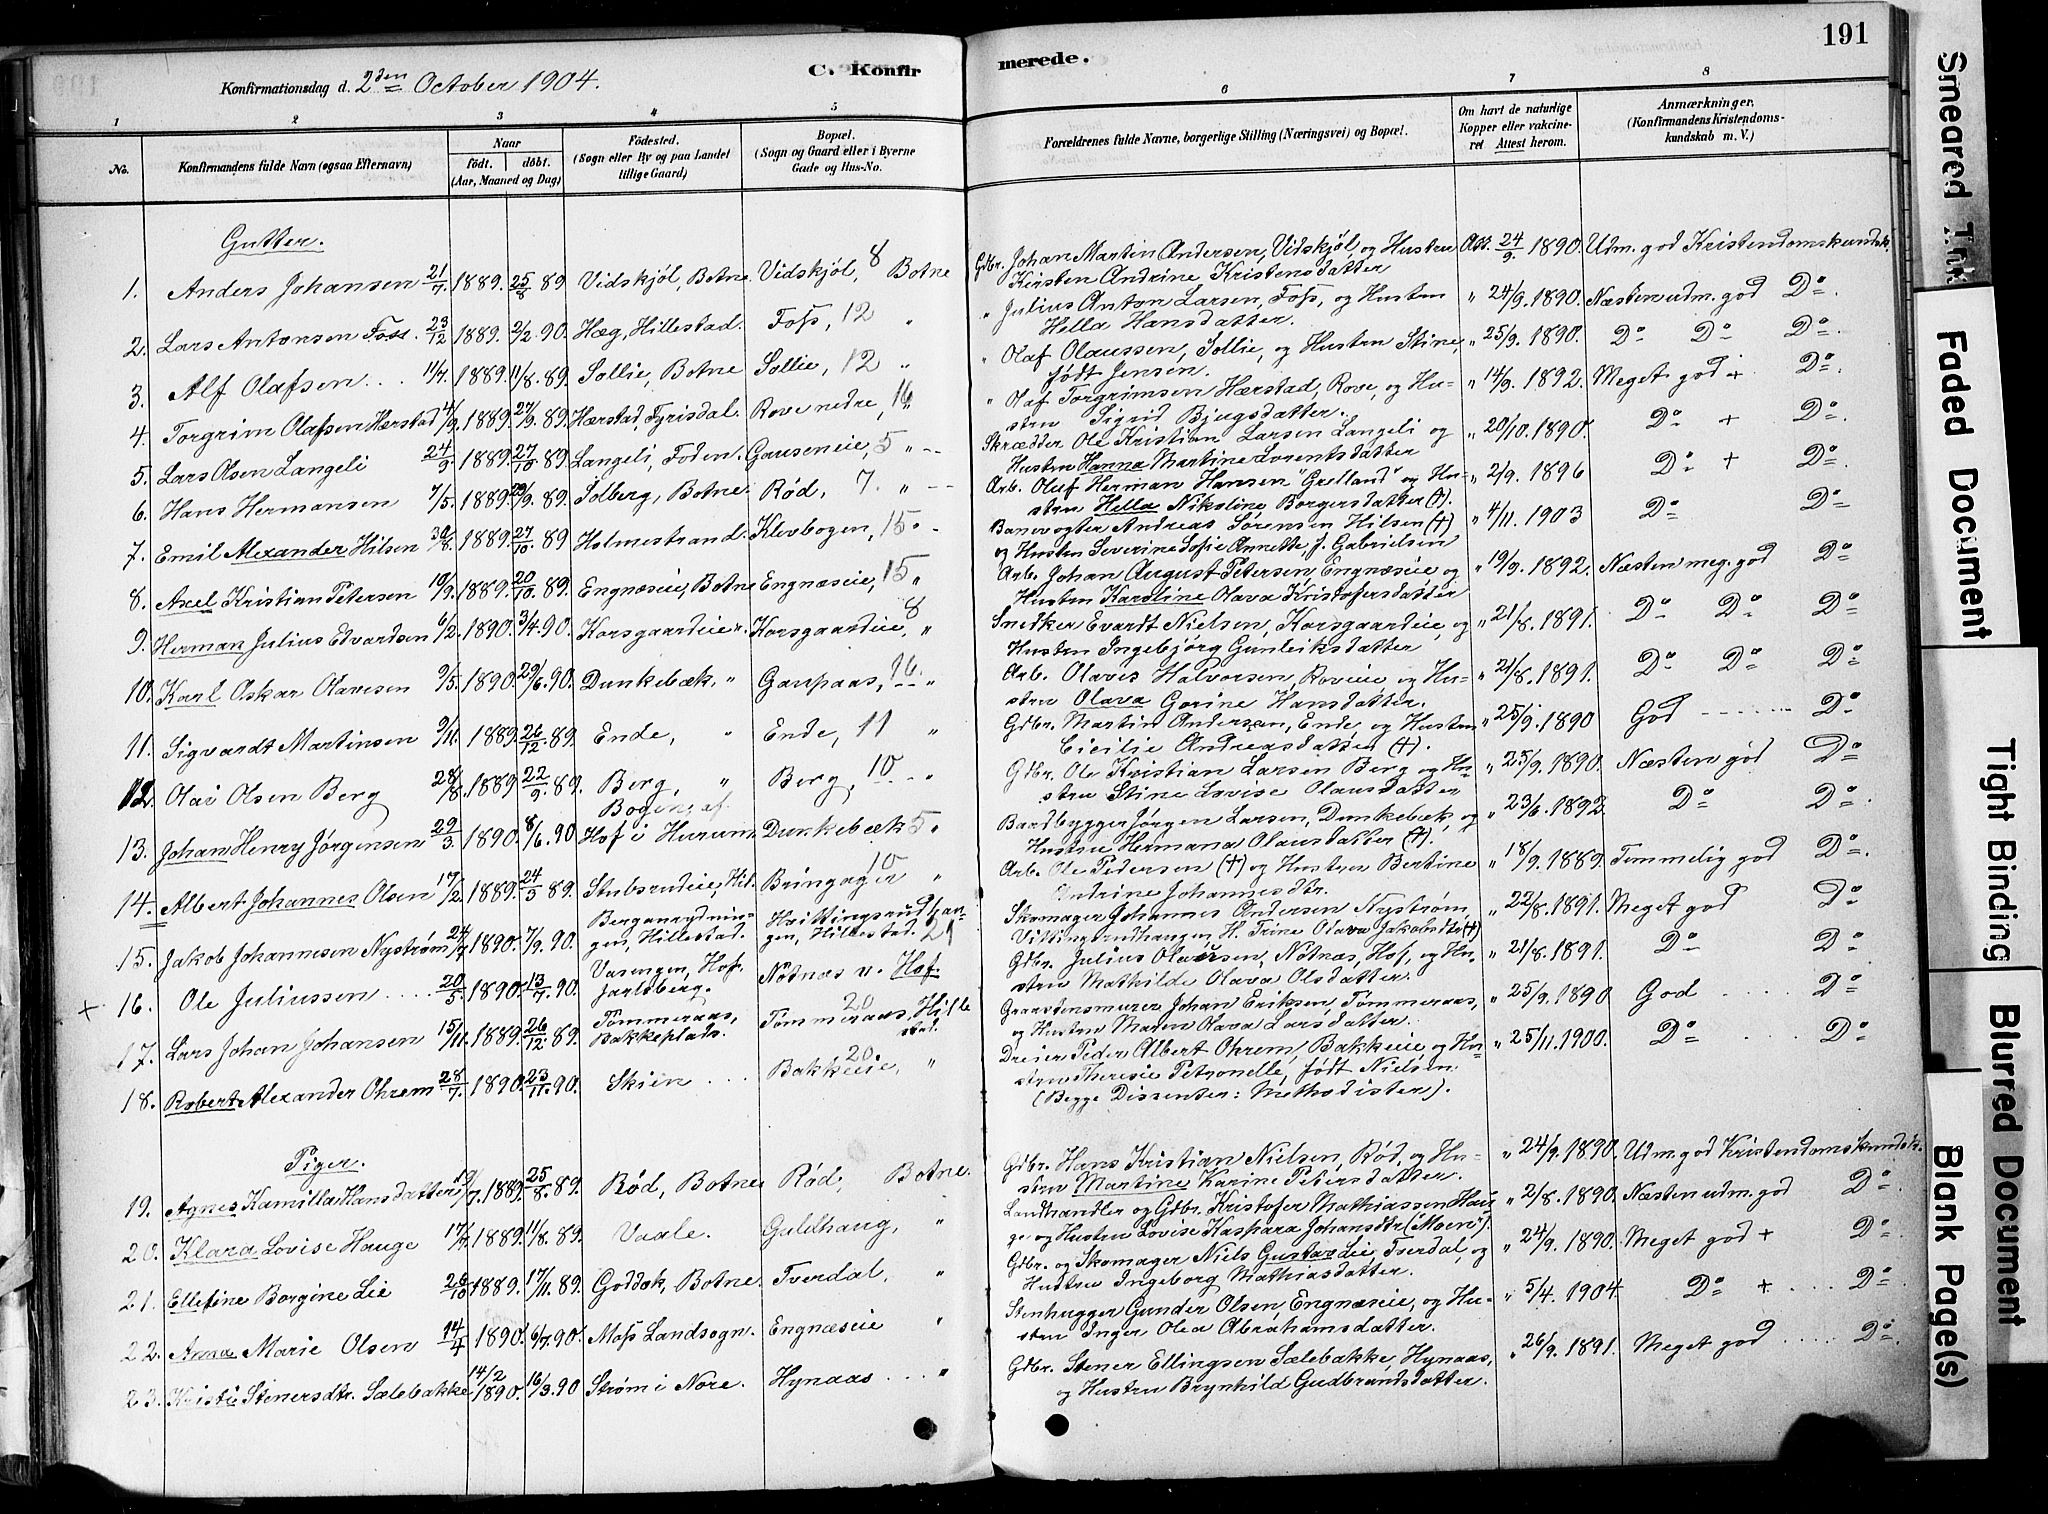 191
C. Konfirmerede.
Konfirmationsdag d. 2den October 1904.
1 2 3 4 5 6 7 8
No.
Konfirmandens fulde Navn (ogsaa Efternavn)
Naar
født. døbt.
(Aar, Maaned og Dag)
Fødested.
(Sogn eller By og paa Landet
tillige Gaard)
Bopæl.
(Sogn og Gaard eller i Byerne
Gade og Hus-No.
Forældrenes fulde Navne, borgerlige Stilling (Næringsvei) og Bopæl.
Om havt de naturlige
Kopper eller vakcine-
ret Attest herom.
Anmærkninger,
(Konfirmandens Kristendoms-
kundskab m. V.)
Gutter.
1. Anders Johansen 21/7. 1889. 25/8 89 Vidskjøl, Botne Vidskjøl, 8 Botne
Gdbr. Johan Martin Andersen, Vidskjøl, og Hustru Att. 24/9. 1890. Udm. god Kristendomskundsk.
Kirsten Andrine Kristensdatter
2. Lars Antonsen Foss. 23/12 1889. 2/2. 90. Hæg, Hillestad. Foss, 12 "
" Julius Anton Larsen, Foss, og Hustru " 24/9. 1890. Næsten udm. god Do.
Hella Hansdatter.
3. Alf Olafsen... 11/7. 1889. 11/8. 89. Sollie, Botne Sollie, 12 "
" Olaf Olaussen, Sollie, og Hustru Stine, " 25/9. 1890. Do Do Do
født Jensen.
4. Torgrim Olafsen Hærstad 4/9 1889. 27/9. 89. Hærstad, Fyrisdal. Rove nedre, 16 "
" Olaf Torgrimsen Hærstad, Rove, og Hu- " 14/9. 1892. Meget god + Do
stru Sigrid Bjugsdatter.
5. Lars Olsen Langeli 24/9 1889. 27/10 89. Langeli, Foden. Gauseneie, 5 "
Skrædder Ole Kristian Larsen Langeli og " 20/10. 1890. Do + Do
Hustru Hanna Martine Lorentsdatter
6. Hans Hermansen 7/5. 1889. 29/9. 89. Solberg, Botne. Rød, 7. "
Arb. Oluf Herman Hansen "Grelland" og Hu- " 2/9. 1896 Do + Do
stru Hella Nikoline Borgersdatter (+).
7. Emil Alexander Hilsen 30/8. 1889. 27/10. 89 Holmestrand. Klevbogen, 15 "
Banevogter Andreas Sørensen Hilsen (+) " 4/11. 1903 Do Do
og Hustru Severine Sofie Annette, f. Gabrielsen
8. Axel Kristian Petersen 10/9. 1889. 20/10. 89. Engnæseie, Botne Engnæseie, 15 "
Arb. Johan August Petersen, Engnæseie og " 19/9. 1892. Næsten meg. god Do
Hustru Karoline Olava Kristofersdatter
9. Herman Julius Edvardsen 6/2. 1890. 3/4. 90. Korsgaardeie ". Korsgaardeie, 8 "
Snedker Evardt Nielsen, Korsgaardeie, og " 21/8. 1891. Do Do Do
Hustru Ingebjørg Gunleiksdatter
10. Karl Oskar Olavesen 9/5. 1890. 29/6. 90. Dunkebæk, " Gaupaas, 16. "
Arb. Olaves Halvorsen, Roveie og Hu- " 21/8. 1891. Do Do Do
stru Olava Gorine Hansdatter.
11. Sigvardt Martinsen 9/11. 1889. 26/12. 89. Ende, " Ende, 11 "
Gdbr. Martin Andersen, Ende, og Hustru " 25/9. 1890 God Do
Cicilie Andreasdatter (+).
12. Olai Olsen Berg 28/8. 1889 22/9. 89. Berg, " Berg, 10 "
Gdbr. Ole Kristian Larsen Berg og Hu- " 25/9. 1890. Næsten god Do
stru Stine Lovise Olausdatter
13. Johan Henry Jørgensen 29/3. 1890. 8/6. 90 Hof i Hurum Dunkebæk 5 "
Baadbygger Jørgen Larsen, Dunkebæk, og " 23/6. 1892. Do Do
Hustru Hermana Olausdatter (+).
14. Albert Johannes Olsen 17/2. 1889. 24/3 89. Stubsrudeie, Hil. Bringager 10 "
Arb. Ole Pedersen (+) og Hustru Bertine " 18/9. 1889. Temmelig god Do
Andrine Johannesdtr.
15. Jakob Johannesen Nystrøm 24/7 1890. 7/9. 90.
gen, Hillestad. gen, Hillestad. 21
Skomager Johannes Andersen Nystrøm, " 22/8. 1891. Meget god Do
Vittingsrudhaugen, H. Trine Olava Jakobsdtr (+)
+ 16. Ole Juliussen 20/5. 1890. 13/7. 90. Vasengen, Hof, Jarlsberg. Notnæs v. Hof.
Gdbr. Julius Olaussen, Notnæs, Hof, og Hu- " 21/8. 1891. Do Do
stru Mathilde Olava Olsdatter.
17. Lars Johan Johansen 15/11. 1889. 26/12. 89. Tømmeraas, Bakkeplads. Tømmeraas, 20 Hille stad.
Graastensmurer Johan Eriksen, Tømmeraas, " 25/9. 1890 God Do
og Hustru Maren Olava Larsdatter.
18. Robert Alexander Ohrem 28/7. 1890. 23/11. 90. Skien Bakkeeie, 20 "
Dreier Peder Albert Ohrem, Bakkeie og Hu- " 25/11. 1900. Do Do
stru Theresie Petronelle, født Nielsen.
(Begge Dissenter: Methodister).
Piger.
19. Agnes Kamilla Hansdatter 19/7. 1889. 25/8. 89. Rød, Botne Rød, Botne.
Gdbr. Hans Kristian Nielsen, Rød, og Hu- " 24/9. 1890. Udm. god Kristendomskundsk.
stru Martine Karine Petersdatter.
20. Klara Lovise Hauge 17/7. 1889. 11/8. 89. Vaale. Guldhaug, "
Landhandler og Gdbr. Kristofer Mathiassen Hau- " 2/8. 1890. Næsten udm. god Do
ge og Hustru Lovise Kaspara Johansdtr (Moen").
21. Ellefine Borgine Lie 26/10 1889. 17/11. 89. Goddok, Botne. Tverdal, "
Gdbr. og Skomager Niels Gustav Lie, Tverdal, og " 24/9. 1890. Meget god + Do
Hustru Ingeborg Mathiasdatter.
22. Anna Marie Olsen 14/4 1890. 6/7. 90. Moss Landsogn. Engnæseie "
Stenhugger Gunder Olsen, Engnæseie, og Hu- " 5/4. 1904. Do + Do
stru Inger Olea Abrahamsdatter.
23. Kristi Stenersdtr. Sælebakke 14/2 1890. 16/3. 90 Strøm i Nore. Hynaas "
Gdbr. Stener Ellingsen Sælebakke, Hynaas, " 26/9. 1891. Meget god Do
og Hustru Brynhild Gudbrandsdatter.
Smeared Ink
Faded Document
Tight Binding
Blurred Document
Blank Page(s)